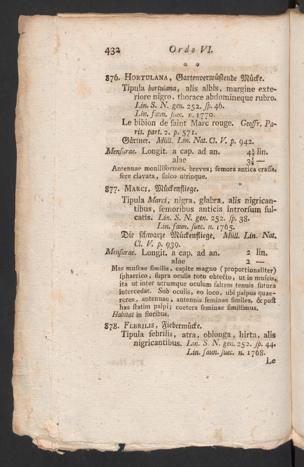 432 Ordo VI.
876. HORTULANA, Gartenverwüstende Mücke.
Tipula hortulana, alis albis, margine exte-
riore nigro, thorace abdomineque rubro.
Lin. S. N. gen. 252. sp. 46.
Lin. faun. suec. n. 1770.
Le bibion de saint Marc rouge. Geoffr. Pa-
ris. part. 2. p. 571.
Gärtner. Müll. Lin. Nat. Cl. V. p. 942.
Mensurae. Longit. a cap. ad an. 4½ lin.
alae 3½ —
Antennae moniliformes, breves; femora antica crassa,
fere clavata, sulco utrinque.
877. MARCI, Mückenfliege.
Tipula Marci, nigra, glabra, alis nigrican-
tibus, femoribus anticis introrsum ful-
catis. Lin. S. N. gen. 252. sp. 38.
Lin. faun. suec. n. 1765.
Die schwarze Mückenfliege. Müll. Lin. Nat.
Cl. V. p. 939.
Mensurae. Longit. a cap. ad an. 2 lin.
alae 2 —
Mas muscae similis, capite magno (proportionaliter)
sphaerico, supra oculis toto obtecto, ut in muscis,
ita ut inter utrumque oculum saltem tenuis sutura
intercedat. Sub oculis, eo loco, ubi palpos quae-
reres, antennae, antennis feminae similes, & post
has statim palpi; coetera feminae simillimus.
Habitat in floribus.
878. FEBRILIS, Fiebermücke.
Tipula febrilis, atra, oblonga, hirta, alis
nigricantibus. Lin. S. N. gen. 252. sp. 44.
Lin. faun. suec. n. 1768.
Le